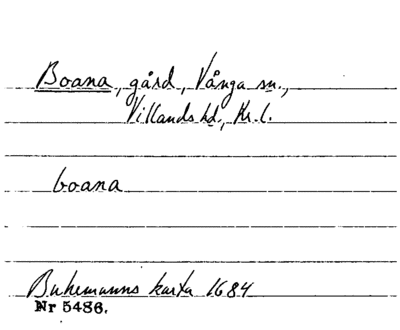 Boana, gård, Vånga sn.,
Villands hd., Kr. l.
boana
Buhrmanns karta 1684
Nr 5486.